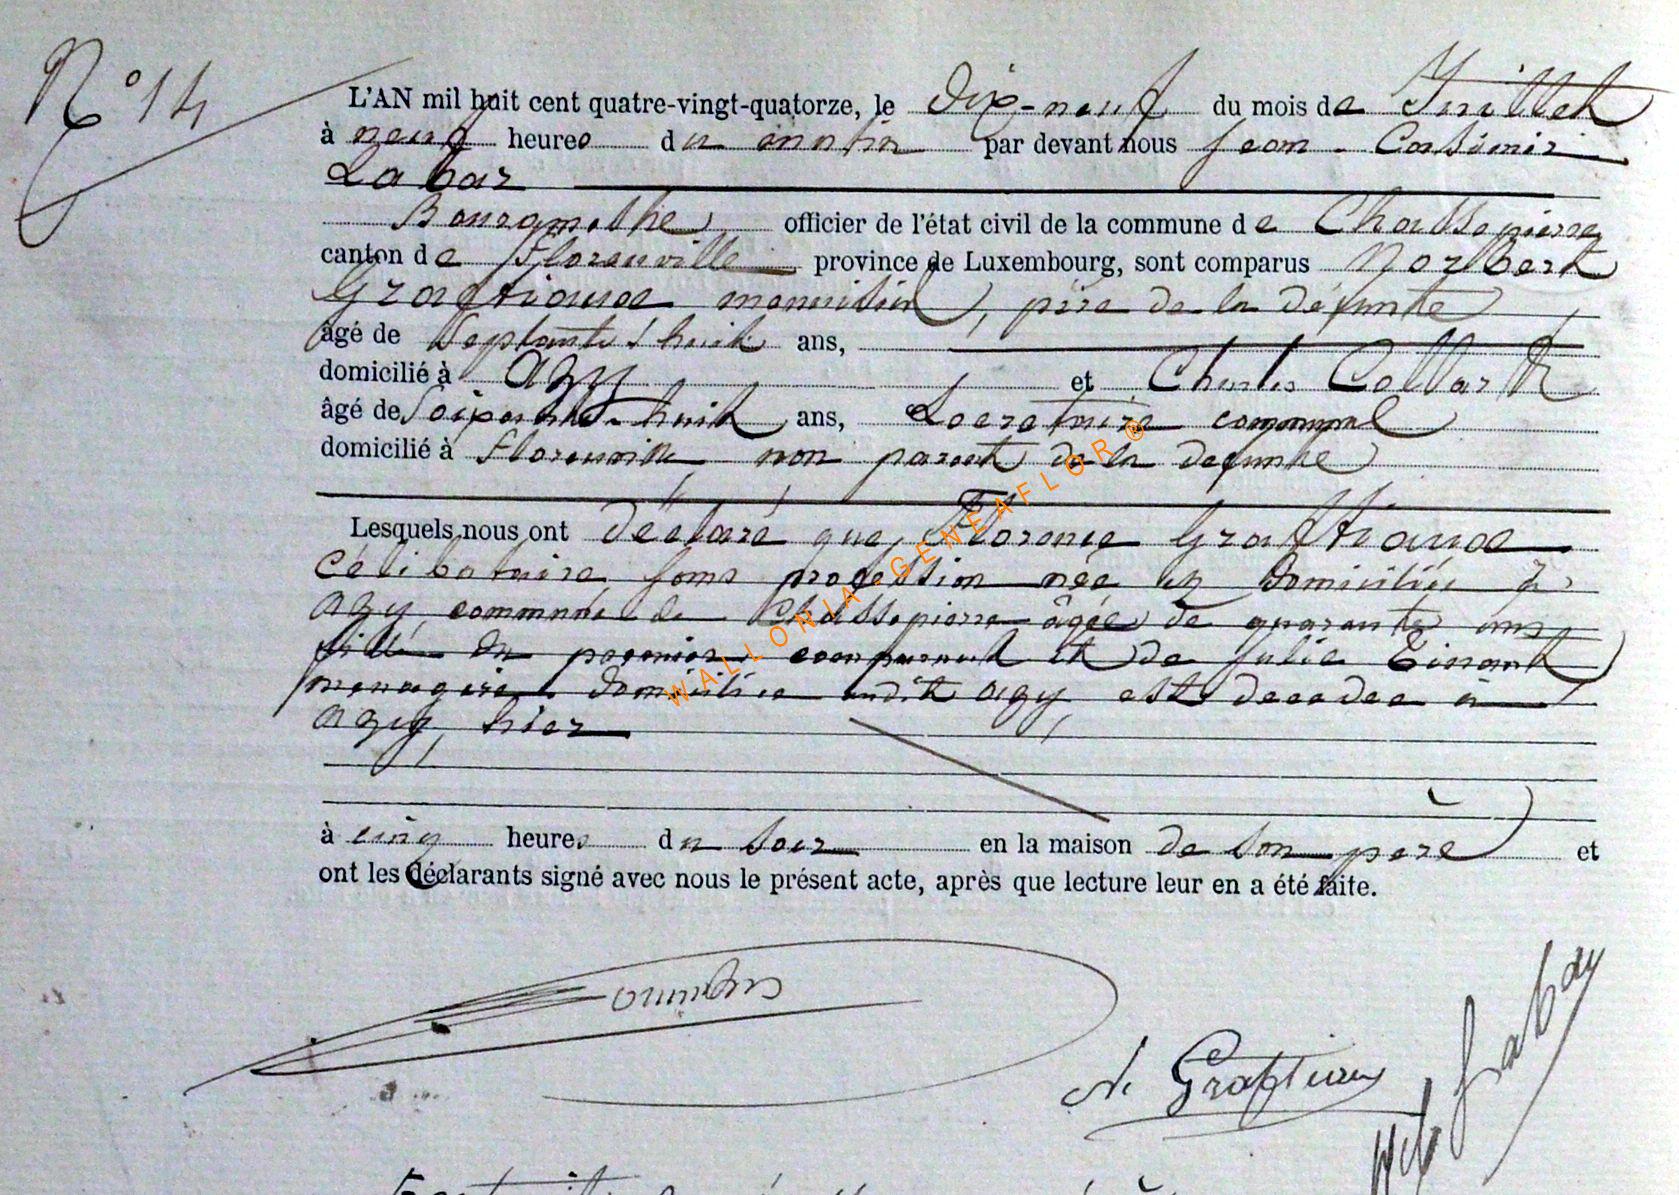 N° 14
L'AN mil huit cent quatre-vingt-quatorze, le dix-neuf du mois de Juillet
à neuf heures du matin par devant nous Jean-Casimir
Labar
Bourgmestre, officier de l'état civil de la commune de Chassepierre
canton de Florenville province de Luxembourg, sont comparus Norbert
Graftiaux menuisier, père de la défunte
âgé de Septante huit ans,
domicilié à Azy et Charles Collart
âgé de Soixante-huit ans, Secretaire communal
domicilié à Florenville, non parent de la defunte
Lesquels nous ont déclaré que, Florence Graftiaux
célibataire sans profession née et domiciliée à
Azy, commune de Chassepierre âgée de quarante ans
fille du premier comparant et de Julie Tinant
menagère domiciliée audit Azy, est decedee à
Azy, hier
à cinq heures du soir en la maison de son père et
ont les déclarants signé avec nous le présent acte, après que lecture leur en a été faite.
N. Graftiaux
Labar
WALLONIA-GENEAFLOR®